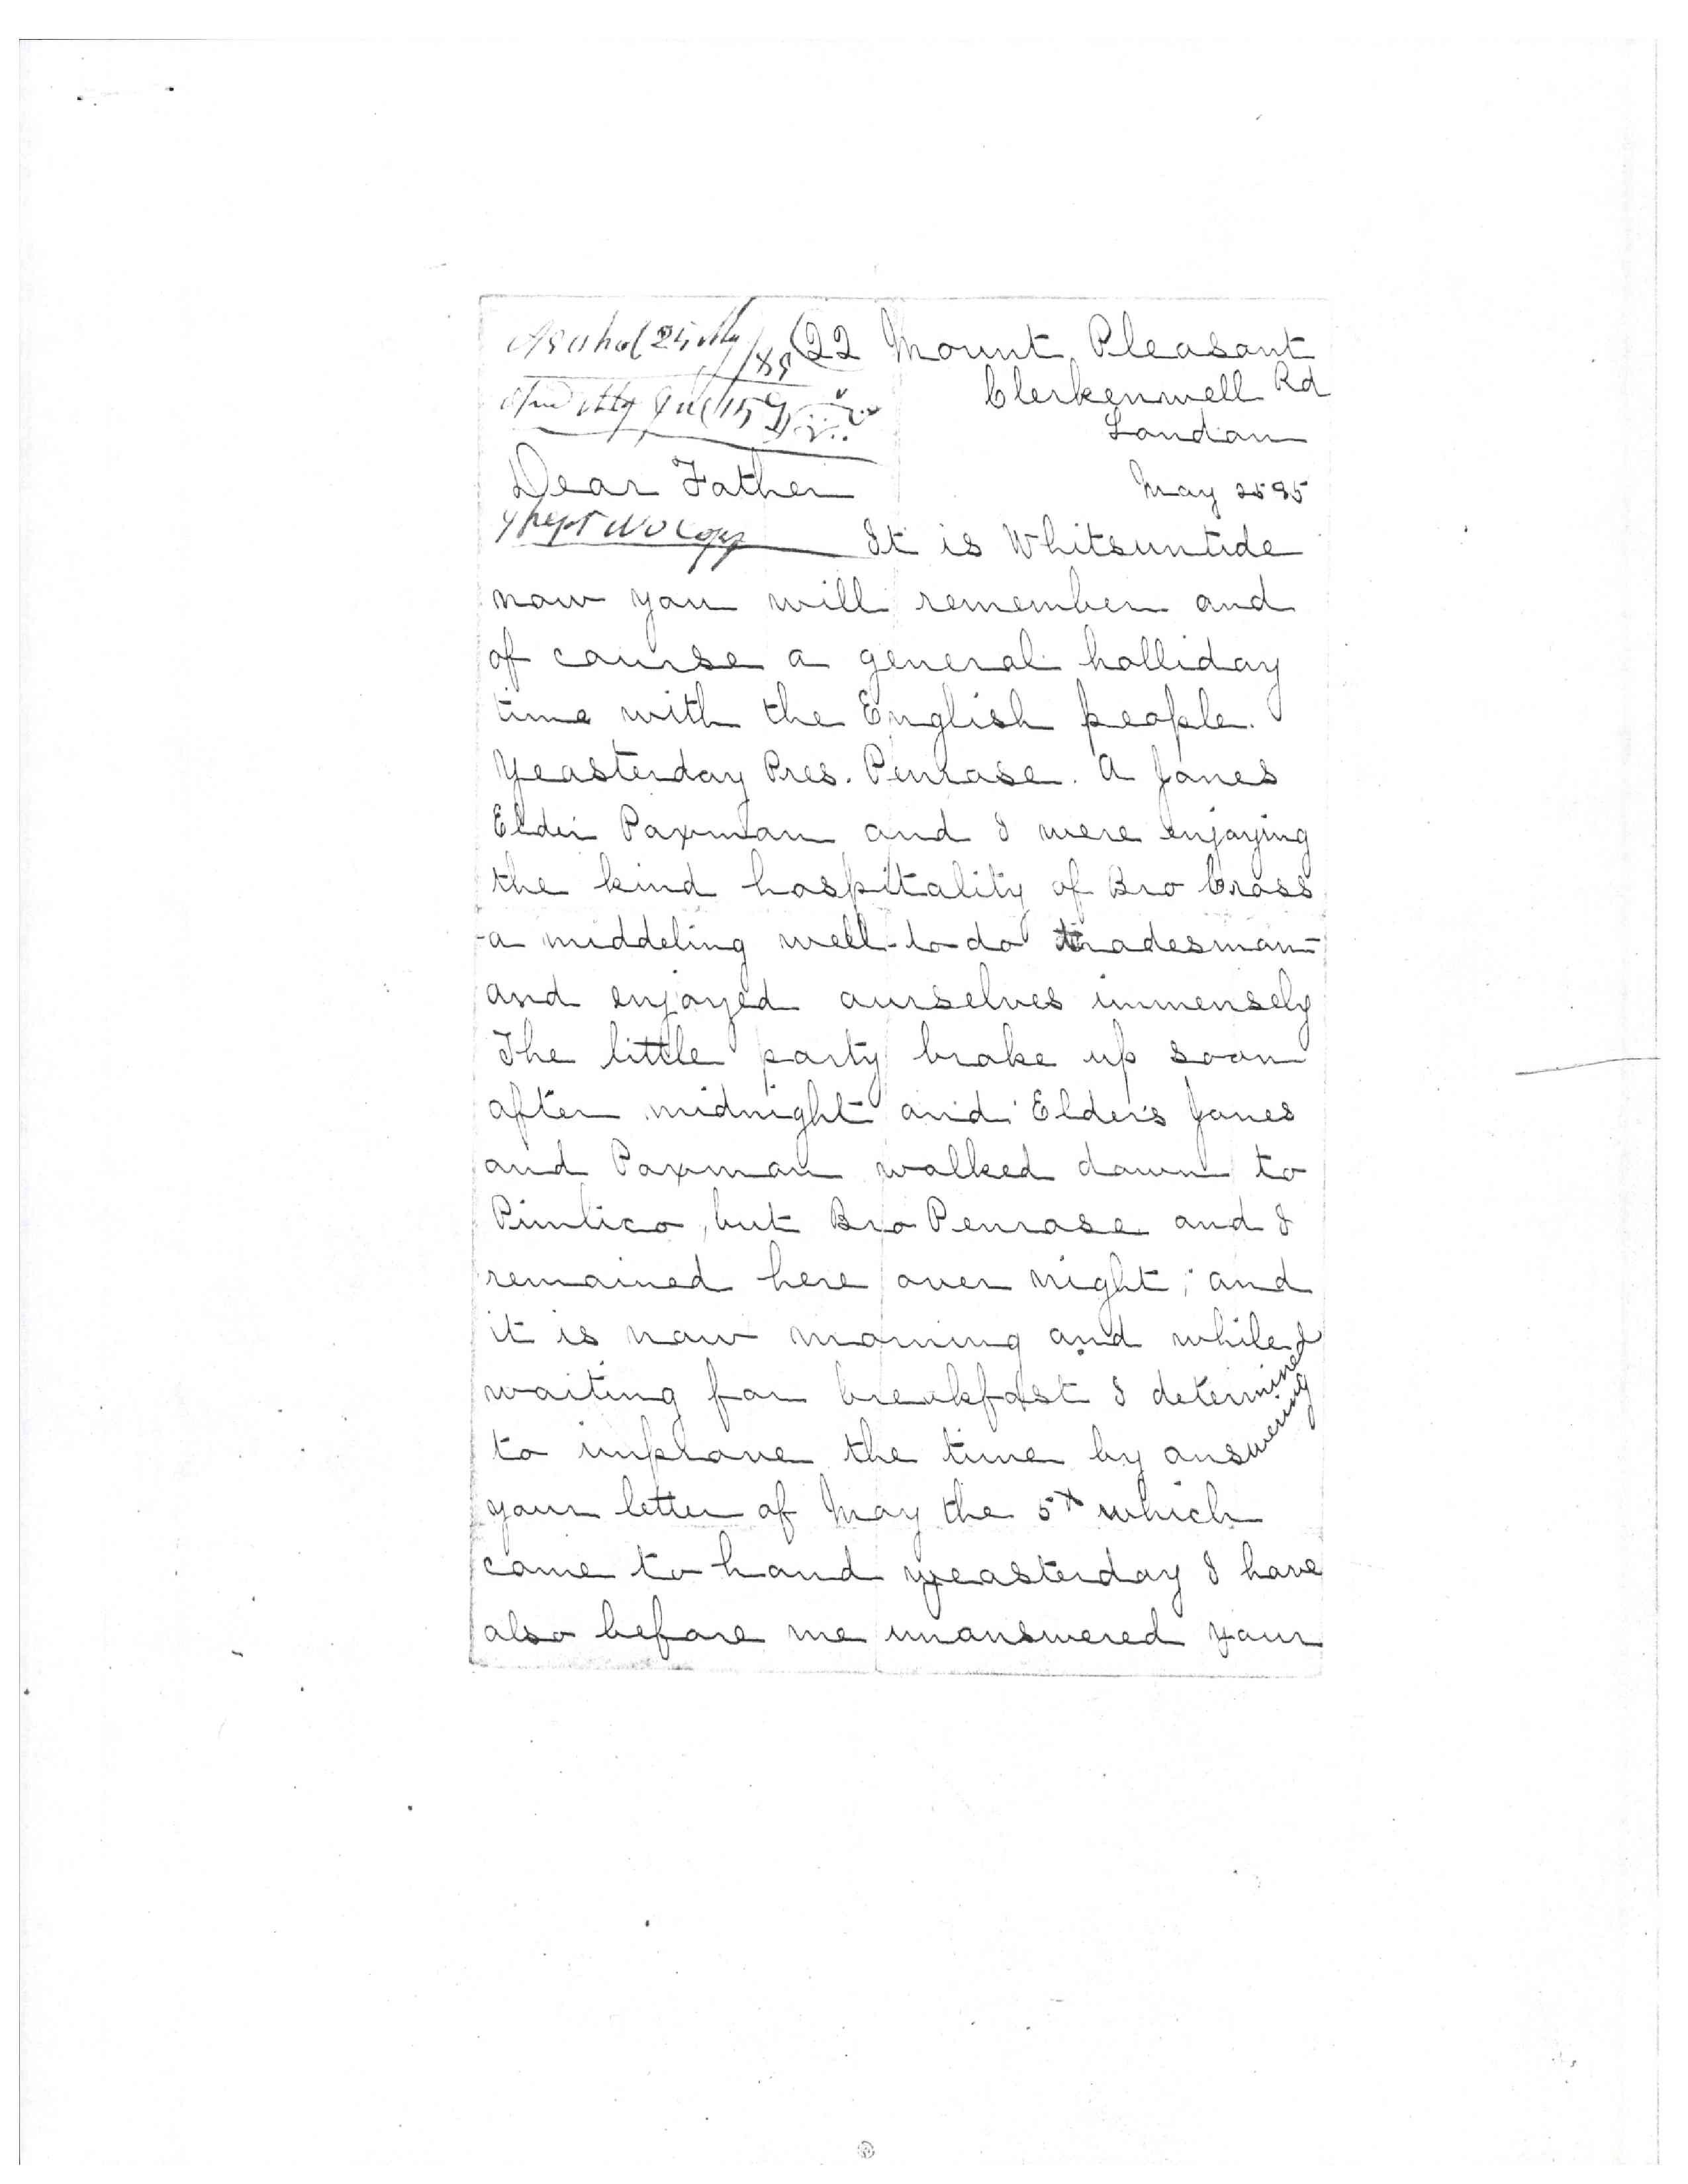 22 Mount Pleasant
Clerkenwell Rd
London
Dear Father
May 25 85
I kept No Copy
It is Whitsuntide
now you will remember and
of course a general holliday
time with the English people.
Yeasterday Pres. Penrose. A Jones
Elder Paxman and I were enjoying
the kind hospitality of Bro Cross
-a middeling well-to-do tradesman-
and enjoyed ourselves immensely
The little party broke up soon
after midnight and Elders Jones
and Paxman walked down to
Pimlico, but Bro Penrose and I
remained here over night, and
it is now morning and while I
waiting for breakfast I determined
to improve the time by answering
your letter of May the 5th which
came to hand yeasterday I have
also before me unanswered your